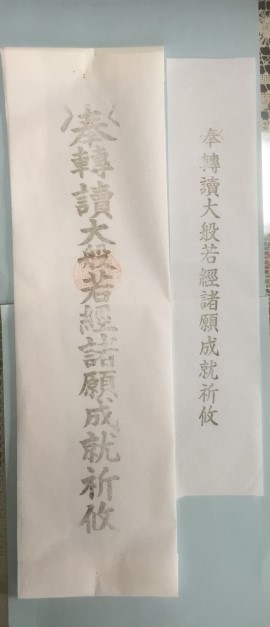 奉轉讀大般若經諸願成就祈攸
奉轉讀大般若經諸願成就祈攸